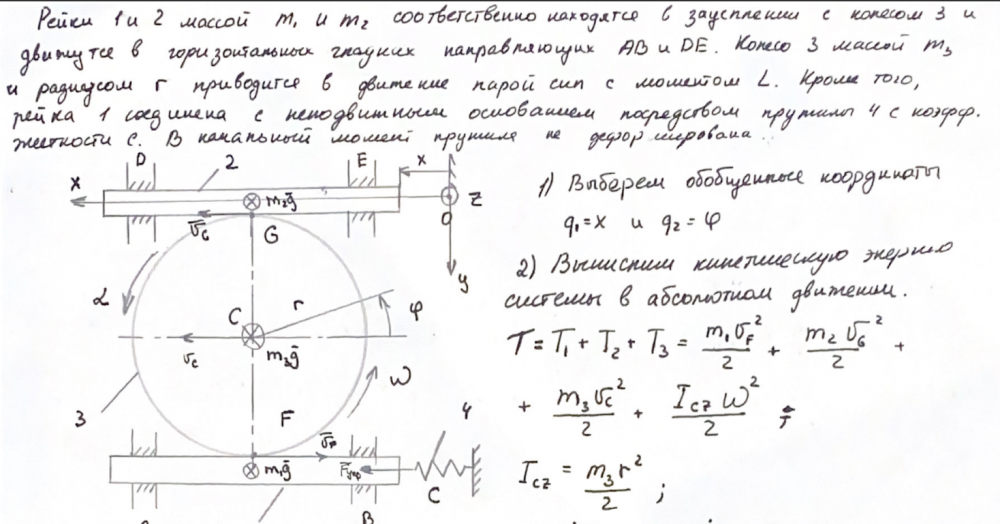 Рейки 1 и 2 массой m₁ и m₂ соответственно находятся в зацеплении с колесом 3 и
движутся в горизонтальных гладких направляющих AB и DE. Колесо 3 массой m₃
и радиусом r приводится в движение парой сил с моментом L. Кроме того,
рейка 1 соединена с неподвижным основанием посредством пружины 4 с коэфф.
жесткости c. В начальный момент пружина не деформирована.
D 2 E x
x m₂g̅ O z
v̅_G G y
L C r φ
v_c m₃g̅ ω
3 F 4
v̅_F
m₁g̅ F̅упр C
B
1) Выберем обобщенные координаты
q₁=x и q₂=φ
2) Вычислим кинетическую энергию
системы в абсолютном движении.
T = T₁ + T₂ + T₃ = m₁v_F²/2 + m₂v_G²/2 +
+ m₃v_c²/2 + I_cz ω²/2 ;
I_cz = m₃r²/2 ;